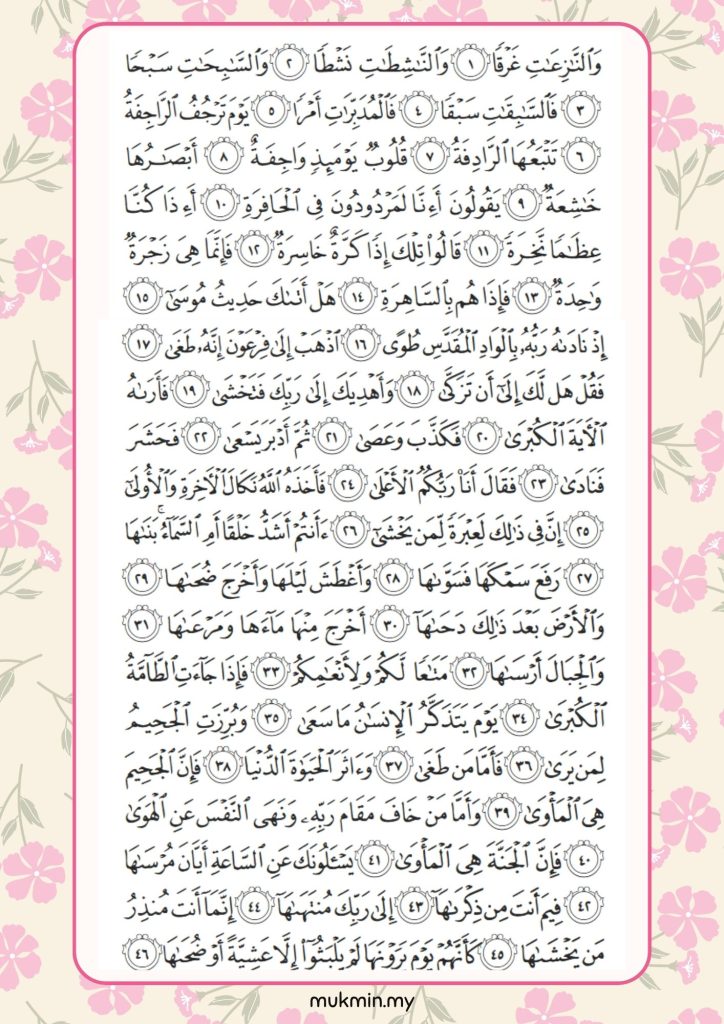 وَٱلنَّـٰزِعَـٰتِ غَرۡقٗا ١ وَٱلنَّـٰشِطَـٰتِ نَشۡطٗا ٢ وَٱلسَّـٰبِحَـٰتِ سَبۡحٗا
٣ فَٱلسَّـٰبِقَـٰتِ سَبۡقٗا ٤ فَٱلۡمُدَبِّرَٰتِ أَمۡرٗا ٥ يَوۡمَ تَرۡجُفُ ٱلرَّاجِفَةُ
٦ تَتۡبَعُهَا ٱلرَّادِفَةُ ٧ قُلُوبٞ يَوۡمَئِذٖ وَاجِفَةٌ ٨ أَبۡصَـٰرُهَا
خَـٰشِعَةٞ ٩ يَقُولُونَ أَءِنَّا لَمَرۡدُودُونَ فِي ٱلۡحَافِرَةِ ١٠ أَءِذَا كُنَّا
عِظَـٰمٗا نَّخِرَةٗ ١١ قَالُواْ تِلۡكَ إِذٗا كَرَّةٌ خَاسِرَةٞ ١٢ فَإِنَّمَا هِيَ زَجۡرَةٞ
وَٰحِدَةٞ ١٣ فَإِذَا هُم بِٱلسَّاهِرَةِ ١٤ هَلۡ أَتَىٰكَ حَدِيثُ مُوسَىٰٓ ١٥
إِذۡ نَادَىٰهُ رَبُّهُۥ بِٱلۡوَادِ ٱلۡمُقَدَّسِ طُوًى ١٦ ٱذۡهَبۡ إِلَىٰ فِرۡعَوۡنَ إِنَّهُۥ طَغَىٰ ١٧
فَقُلۡ هَل لَّكَ إِلَىٰٓ أَن تَزَكَّىٰ ١٨ وَأَهۡدِيَكَ إِلَىٰ رَبِّكَ فَتَخۡشَىٰ ١٩ فَأَرَىٰهُ
ٱلۡأٓيَةَ ٱلۡكُبۡرَىٰ ٢٠ فَكَذَّبَ وَعَصَىٰ ٢١ ثُمَّ أَدۡبَرَ يَسۡعَىٰ ٢٢ فَحَشَرَ
فَنَادَىٰ ٢٣ فَقَالَ أَنَا۠ رَبُّكُمُ ٱلۡأَعۡلَىٰ ٢٤ فَأَخَذَهُ ٱللَّهُ نَكَالَ ٱلۡأٓخِرَةِ وَٱلۡأُولَىٰٓ
٢٥ إِنَّ فِي ذَٰلِكَ لَعِبۡرَةٗ لِّمَن يَخۡشَىٰٓ ٢٦ ءَأَنتُمۡ أَشَدُّ خَلۡقًا أَمِ ٱلسَّمَآءُۚ بَنَىٰهَا
٢٧ رَفَعَ سَمۡكَهَا فَسَوَّىٰهَا ٢٨ وَأَغۡطَشَ لَيۡلَهَا وَأَخۡرَجَ ضُحَىٰهَا ٢٩
وَٱلۡأَرۡضَ بَعۡدَ ذَٰلِكَ دَحَىٰهَآ ٣٠ أَخۡرَجَ مِنۡهَا مَآءَهَا وَمَرۡعَىٰهَا ٣١
وَٱلۡجِبَالَ أَرۡسَىٰهَا ٣٢ مَتَـٰعٗا لَّكُمۡ وَلِأَنۡعَـٰمِكُمۡ ٣٣ فَإِذَا جَآءَتِ ٱلطَّآمَّةُ
ٱلۡكُبۡرَىٰ ٣٤ يَوۡمَ يَتَذَكَّرُ ٱلۡإِنسَـٰنُ مَا سَعَىٰ ٣٥ وَبُرِّزَتِ ٱلۡجَحِيمُ
لِمَن يَرَىٰ ٣٦ فَأَمَّا مَن طَغَىٰ ٣٧ وَءَاثَرَ ٱلۡحَيَوٰةَ ٱلدُّنۡيَا ٣٨ فَإِنَّ ٱلۡجَحِيمَ
هِيَ ٱلۡمَأۡوَىٰ ٣٩ وَأَمَّا مَنۡ خَافَ مَقَامَ رَبِّهِۦ وَنَهَى ٱلنَّفۡسَ عَنِ ٱلۡهَوَىٰ
٤٠ فَإِنَّ ٱلۡجَنَّةَ هِيَ ٱلۡمَأۡوَىٰ ٤١ يَسۡـَٔلُونَكَ عَنِ ٱلسَّاعَةِ أَيَّانَ مُرۡسَىٰهَا
٤٢ فِيمَ أَنتَ مِن ذِكۡرَىٰهَآ ٤٣ إِلَىٰ رَبِّكَ مُنتَهَىٰهَآ ٤٤ إِنَّمَآ أَنتَ مُنذِرُ
مَن يَخۡشَىٰهَا ٤٥ كَأَنَّهُمۡ يَوۡمَ يَرَوۡنَهَا لَمۡ يَلۡبَثُوٓاْ إِلَّا عَشِيَّةً أَوۡ ضُحَىٰهَا ٤٦
mukmin.my